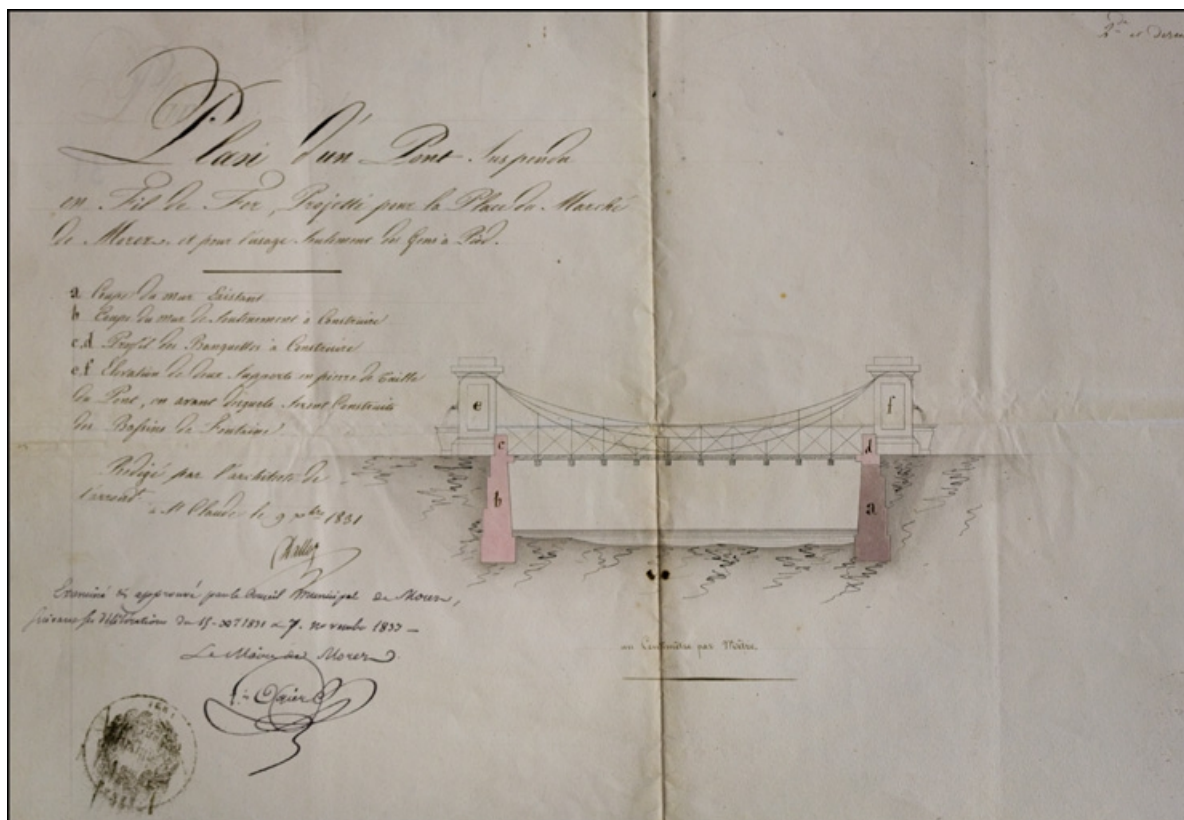 2de et derni
Plan d'un Pont Suspendu
en Fil de Fer, Projetté pour la Place du Marché
de Morez, et pour l'usage Seulement des Gens à Pied.
a Coupe du mur Existant
b Coupe du mur de Soutènement à Construire
c,d Profil des Banquettes à Construire
e,f Elévation de deux Supports en pierre de Taille
du Pont, en avant desquels seront Construits
des Bassins de Fontaine
Rédigé par l'architecte de
l'arrondt
à St Claude le 9 xbre 1831
Examiné & approuvé par le Conseil Municipal de Morez,
suivant ses délibérations du 15 1831 & 7 novembre 1833 -
Le Maire de Morez
e
f
c
d
b
a
un Centimètre par Mètre.